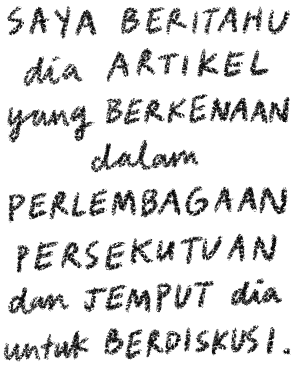 SAYA BERITAHU
dia ARTIKEL
yang BERKENAAN
dalam
PERLEMBAGAAN
PERSEKUTUAN
dan JEMPUT dia
untuk BERDISKUSI.